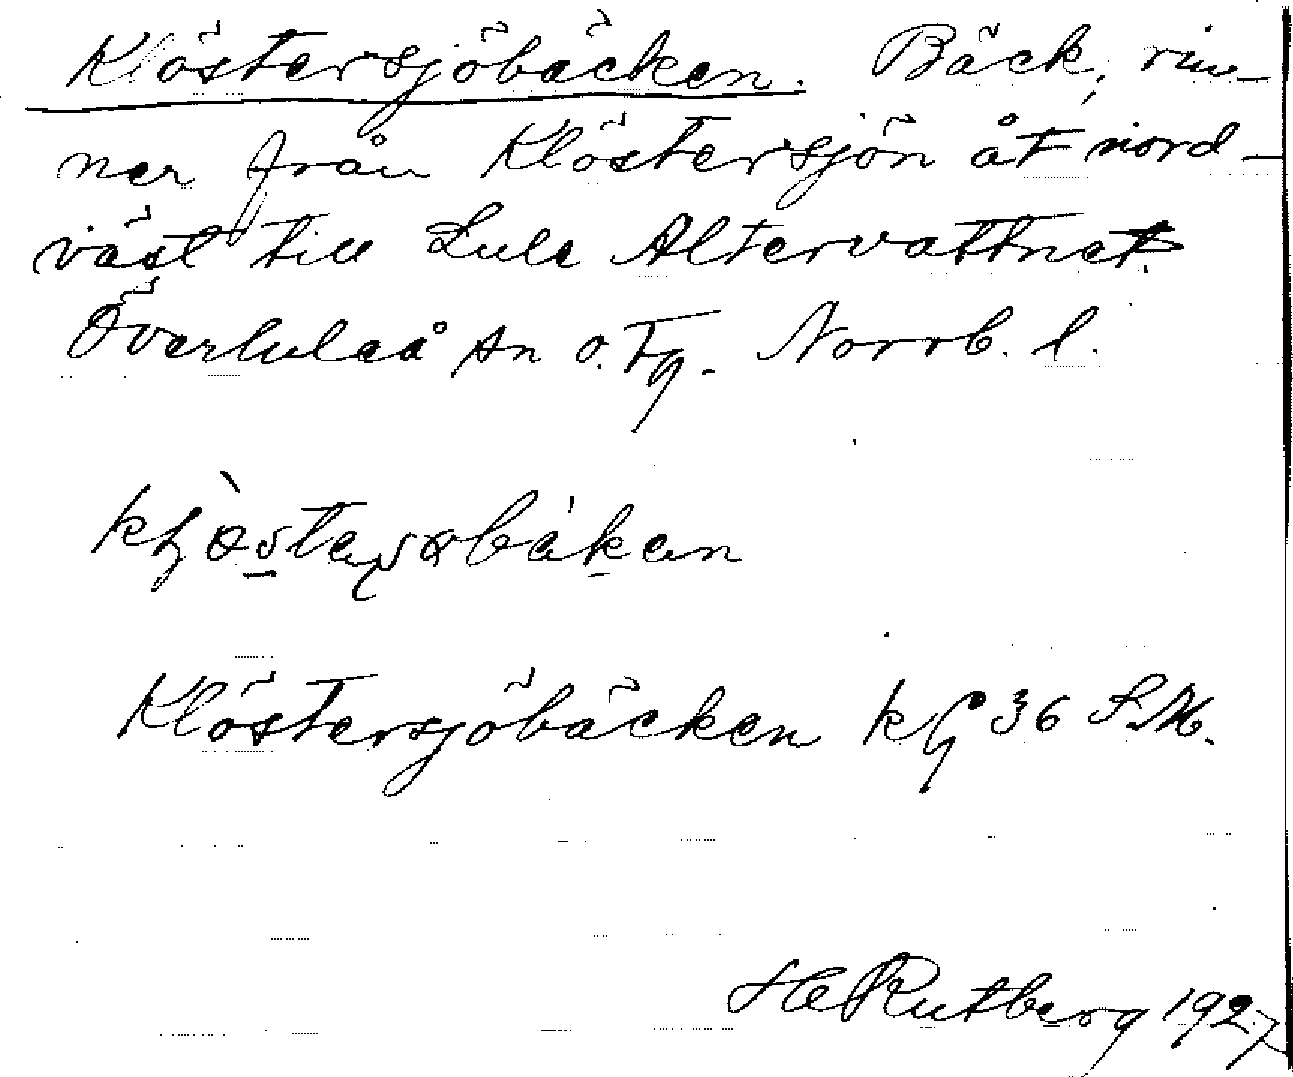 Klöstersjöbäcken. Bäck, rin-
ner från Klöstersjön åt nord-
väst till Lule Altervattnet.
Överluleå sn o. tg. Norrb. l.
Klöstersjöbäcken kg 36 S.M.
H Rutberg 1927